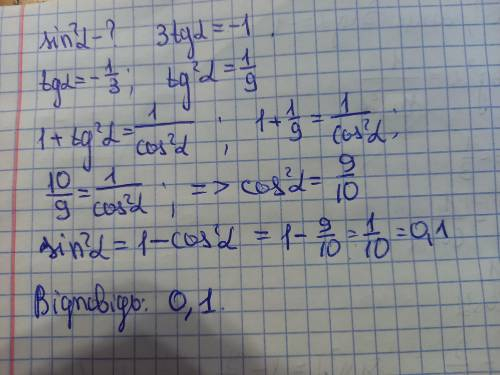 sin²α - ? 3tgα = -1.
tgα = -1/3; tg²α = 1/9
1 + tg²α = 1/cos²α ; 1 + 1/9 = 1/cos²α;
10/9 = 1/cos²α ; => cos²α = 9/10
sin²α = 1 - cos²α = 1 - 9/10 = 1/10 = 0,1
Відповідь: 0,1.